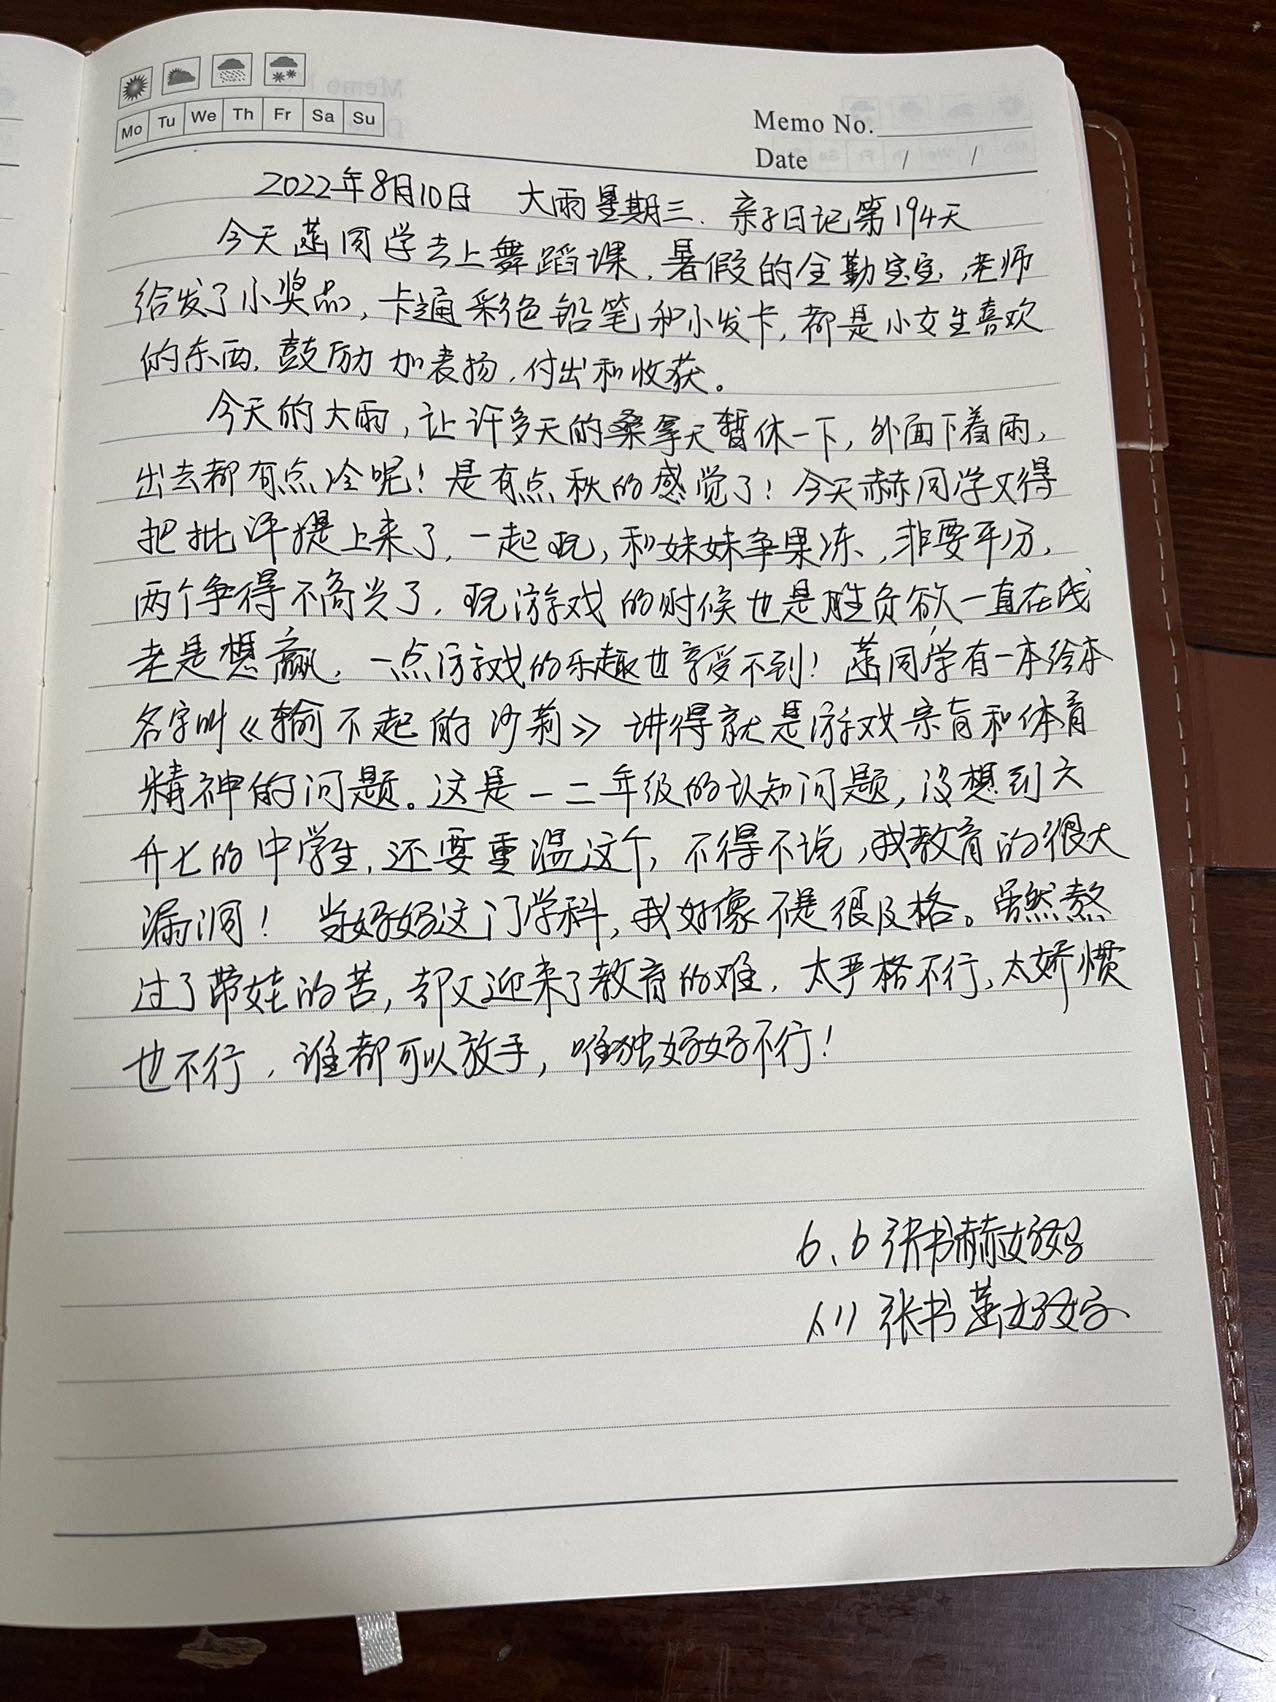 Mo Tu We Th Fr Sa Su
Memo No.
Date / /
2022年8月10日 大雨星期三. 亲子日记第194天
今天菡同学去上舞蹈课,暑假的全勤宝宝,老师
给发了小奖品,卡通彩色铅笔和小发卡,都是小女生喜欢
的东西,鼓励加表扬,付出和收获。
今天的大雨,让许多天的桑拿天暂休一下,外面下着雨,
出去都有点冷呢!是有点秋的感觉了!今天赫同学又得
把批评提上来了,一起玩,和妹妹争果冻,非要平分,
两个争得不高兴了,玩游戏的时候也是胜负欲一直在线
老是想赢,一点游戏的乐趣也享受不到!菡同学有一本绘本
名字叫《输不起的沙莉》讲得就是游戏亲育和体育
精神的问题。这是一二年级的认知问题,没想到六
升七的中学生,还要重温这个,不得不说,我教育的很大
漏洞!当妈妈这门学科,我好像不是很及格。虽然熬
过了带娃的苦,却又迎来了教育的难,太严格不行,太娇惯
也不行,谁都可以放手,唯独妈妈不行!
6、6张书赫妈妈
张书菡妈妈